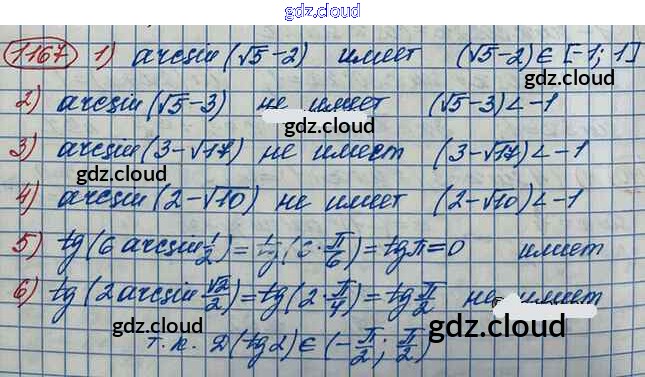 gdz.cloud
1167 1) arcsin (√5-2) имеет (√5-2) ∈ [-1; 1]
gdz.cloud
2) arcsin (√5-3) не имеет (√5-3) < -1
gdz.cloud
3) arcsin (3-√17) не имеет (3-√17) < -1
gdz.cloud
4) arcsin (2-√10) не имеет (2-√10) < -1
5) tg (6 arcsin 1/2) = tg (6·π/6) = tg π = 0 имеет
6) tg (2 arcsin √2/2) = tg (2·π/4) = tg π/2 не имеет
gdz.cloud gdz.cloud
т.к. D(tg2) ∈ (-π/2; π/2)